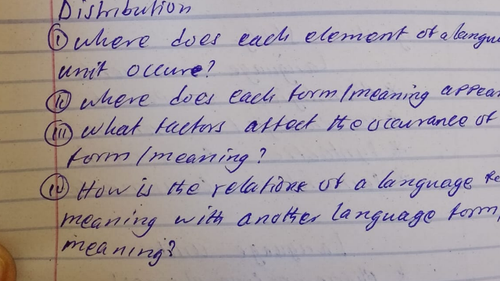 Distribution
(i) where does each element of a langua
unit occure?
(ii) where does each form/meaning appea
(iii) what factors affect the occurance of
form/meaning?
(iv) How is the relations of a language
meaning with another language form,
meaning?